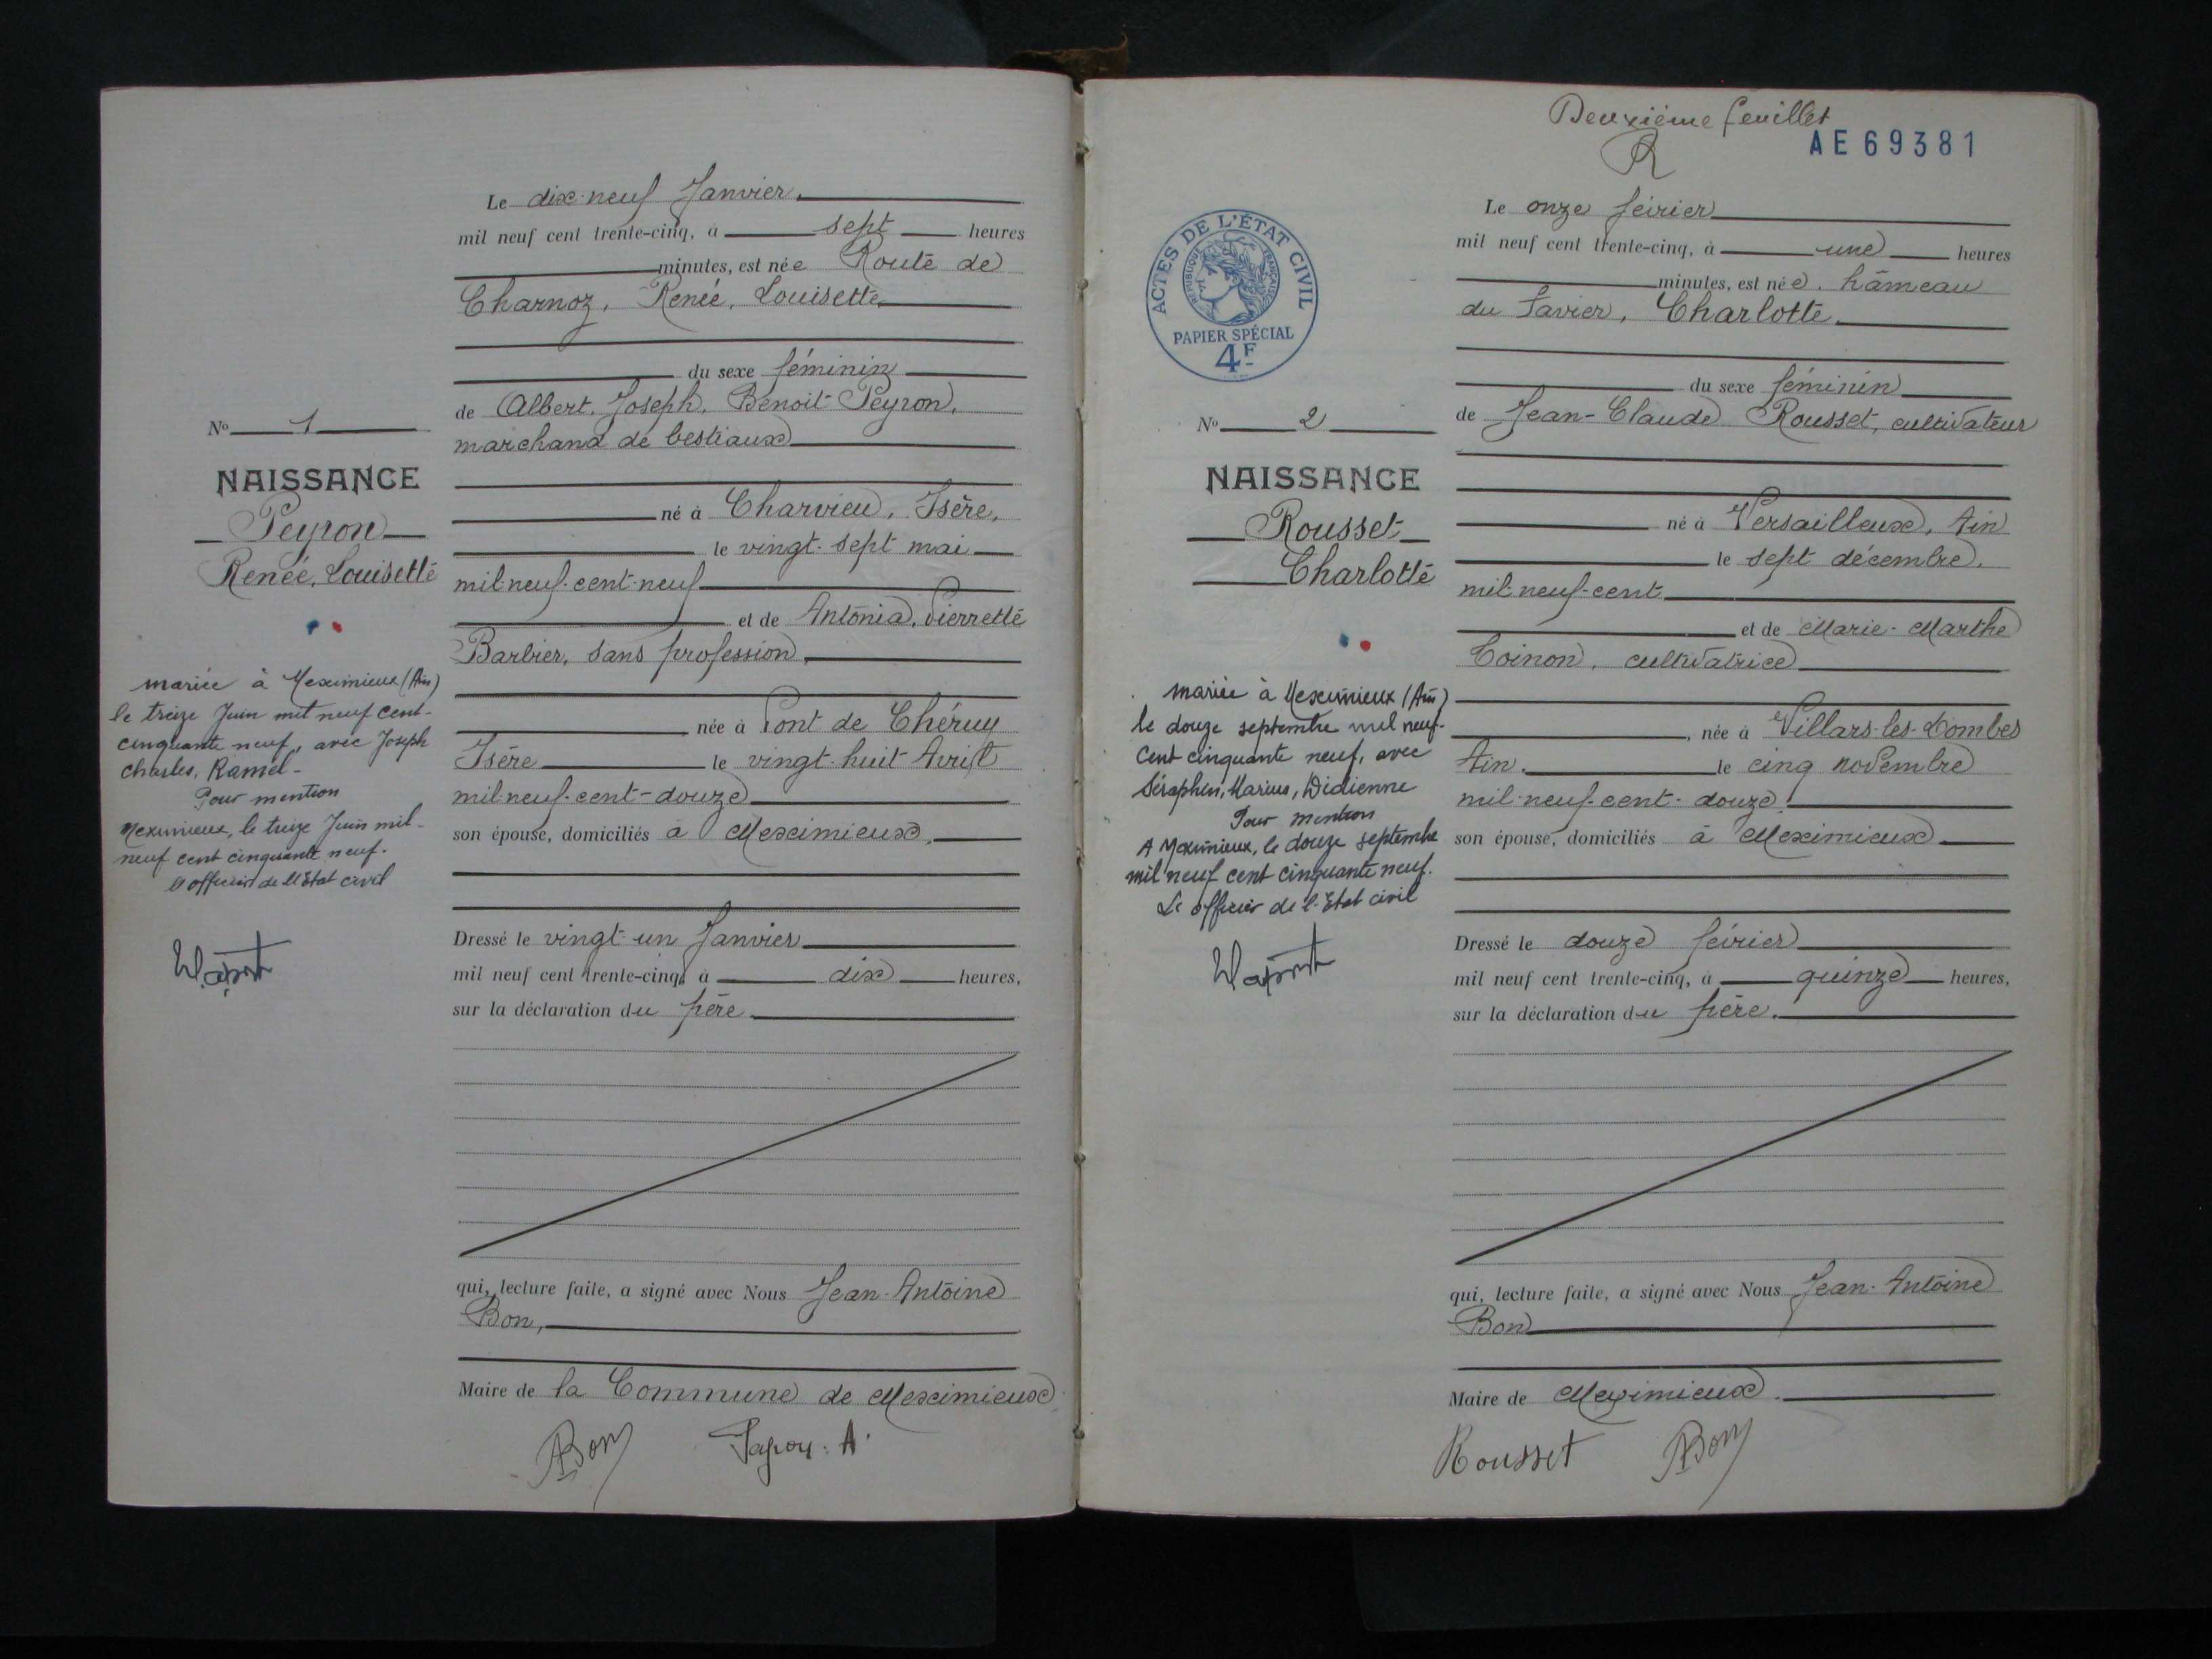 Le dix-neuf Janvier.
mil neuf cent trente-cinq, à sept heures
minutes, est née Route de
Charnoz, Renée, Louisette
du sexe féminin
de Albert, Joseph, Benoit Peyron,
marchand de bestiaux
né à Charvieu, Isère,
le vingt-sept mai
mil neuf-cent-neuf
et de Antonia, Pierrette
Barbier, sans profession,
née à Pont de Chéruy
Isère le vingt-huit Avril
mil neuf-cent-douze
son épouse, domiciliés à Meximieux,
Dressé le vingt-un Janvier
mil neuf cent trente-cinq, à dix heures,
sur la déclaration du père.
qui, lecture faite, a signé avec Nous Jean-Antoine
Bon,
Maire de la Commune de Meximieux
ABon
No 1
NAISSANCE
Peyron
Renée, Louisette
mariée à Meximieux (Ain)
le treize Juin mil neuf cent-
cinquante neuf, avec Joseph
Charles, Ramel-
Pour mention
Meximieux, le treize Juin mil-
neuf cent cinquante neuf.
l'officier de l'Etat civil
Deuxième feuillet
AE69381
ACTES DE L'ÉTAT CIVIL
RÉPUBLIQUE FRANÇAISE
PAPIER SPÉCIAL
4F
Le onze février
mil neuf cent trente-cinq, à une heures
minutes, est née, hâmeau
du Favier, Charlotte.
du sexe féminin
de Jean-Claude Rousset, cultivateur
né à Versailleux, Ain
le sept décembre.
mil neuf-cent
et de Marie-Marthe
Coinon, cultivatrice
, née à Villars-les-Dombes
Ain. le cinq novembre
mil-neuf-cent-douze
son épouse, domiciliés à Meximieux
Dressé le douze février
mil neuf cent trente-cinq, à quinze heures,
sur la déclaration du père.
qui, lecture faite, a signé avec Nous Jean-Antoine
Bon
Maire de Meximieux.
Rousset ABon
No 2
NAISSANCE
Rousset
Charlotte
mariée à Meximieux (Ain)
le douze septembre mil neuf-
cent cinquante neuf, avec
Séraphin, Marius, Didienne
Pour mention
A Meximieux, le douze septembre
mil neuf cent cinquante neuf.
Le officier de l'Etat civil